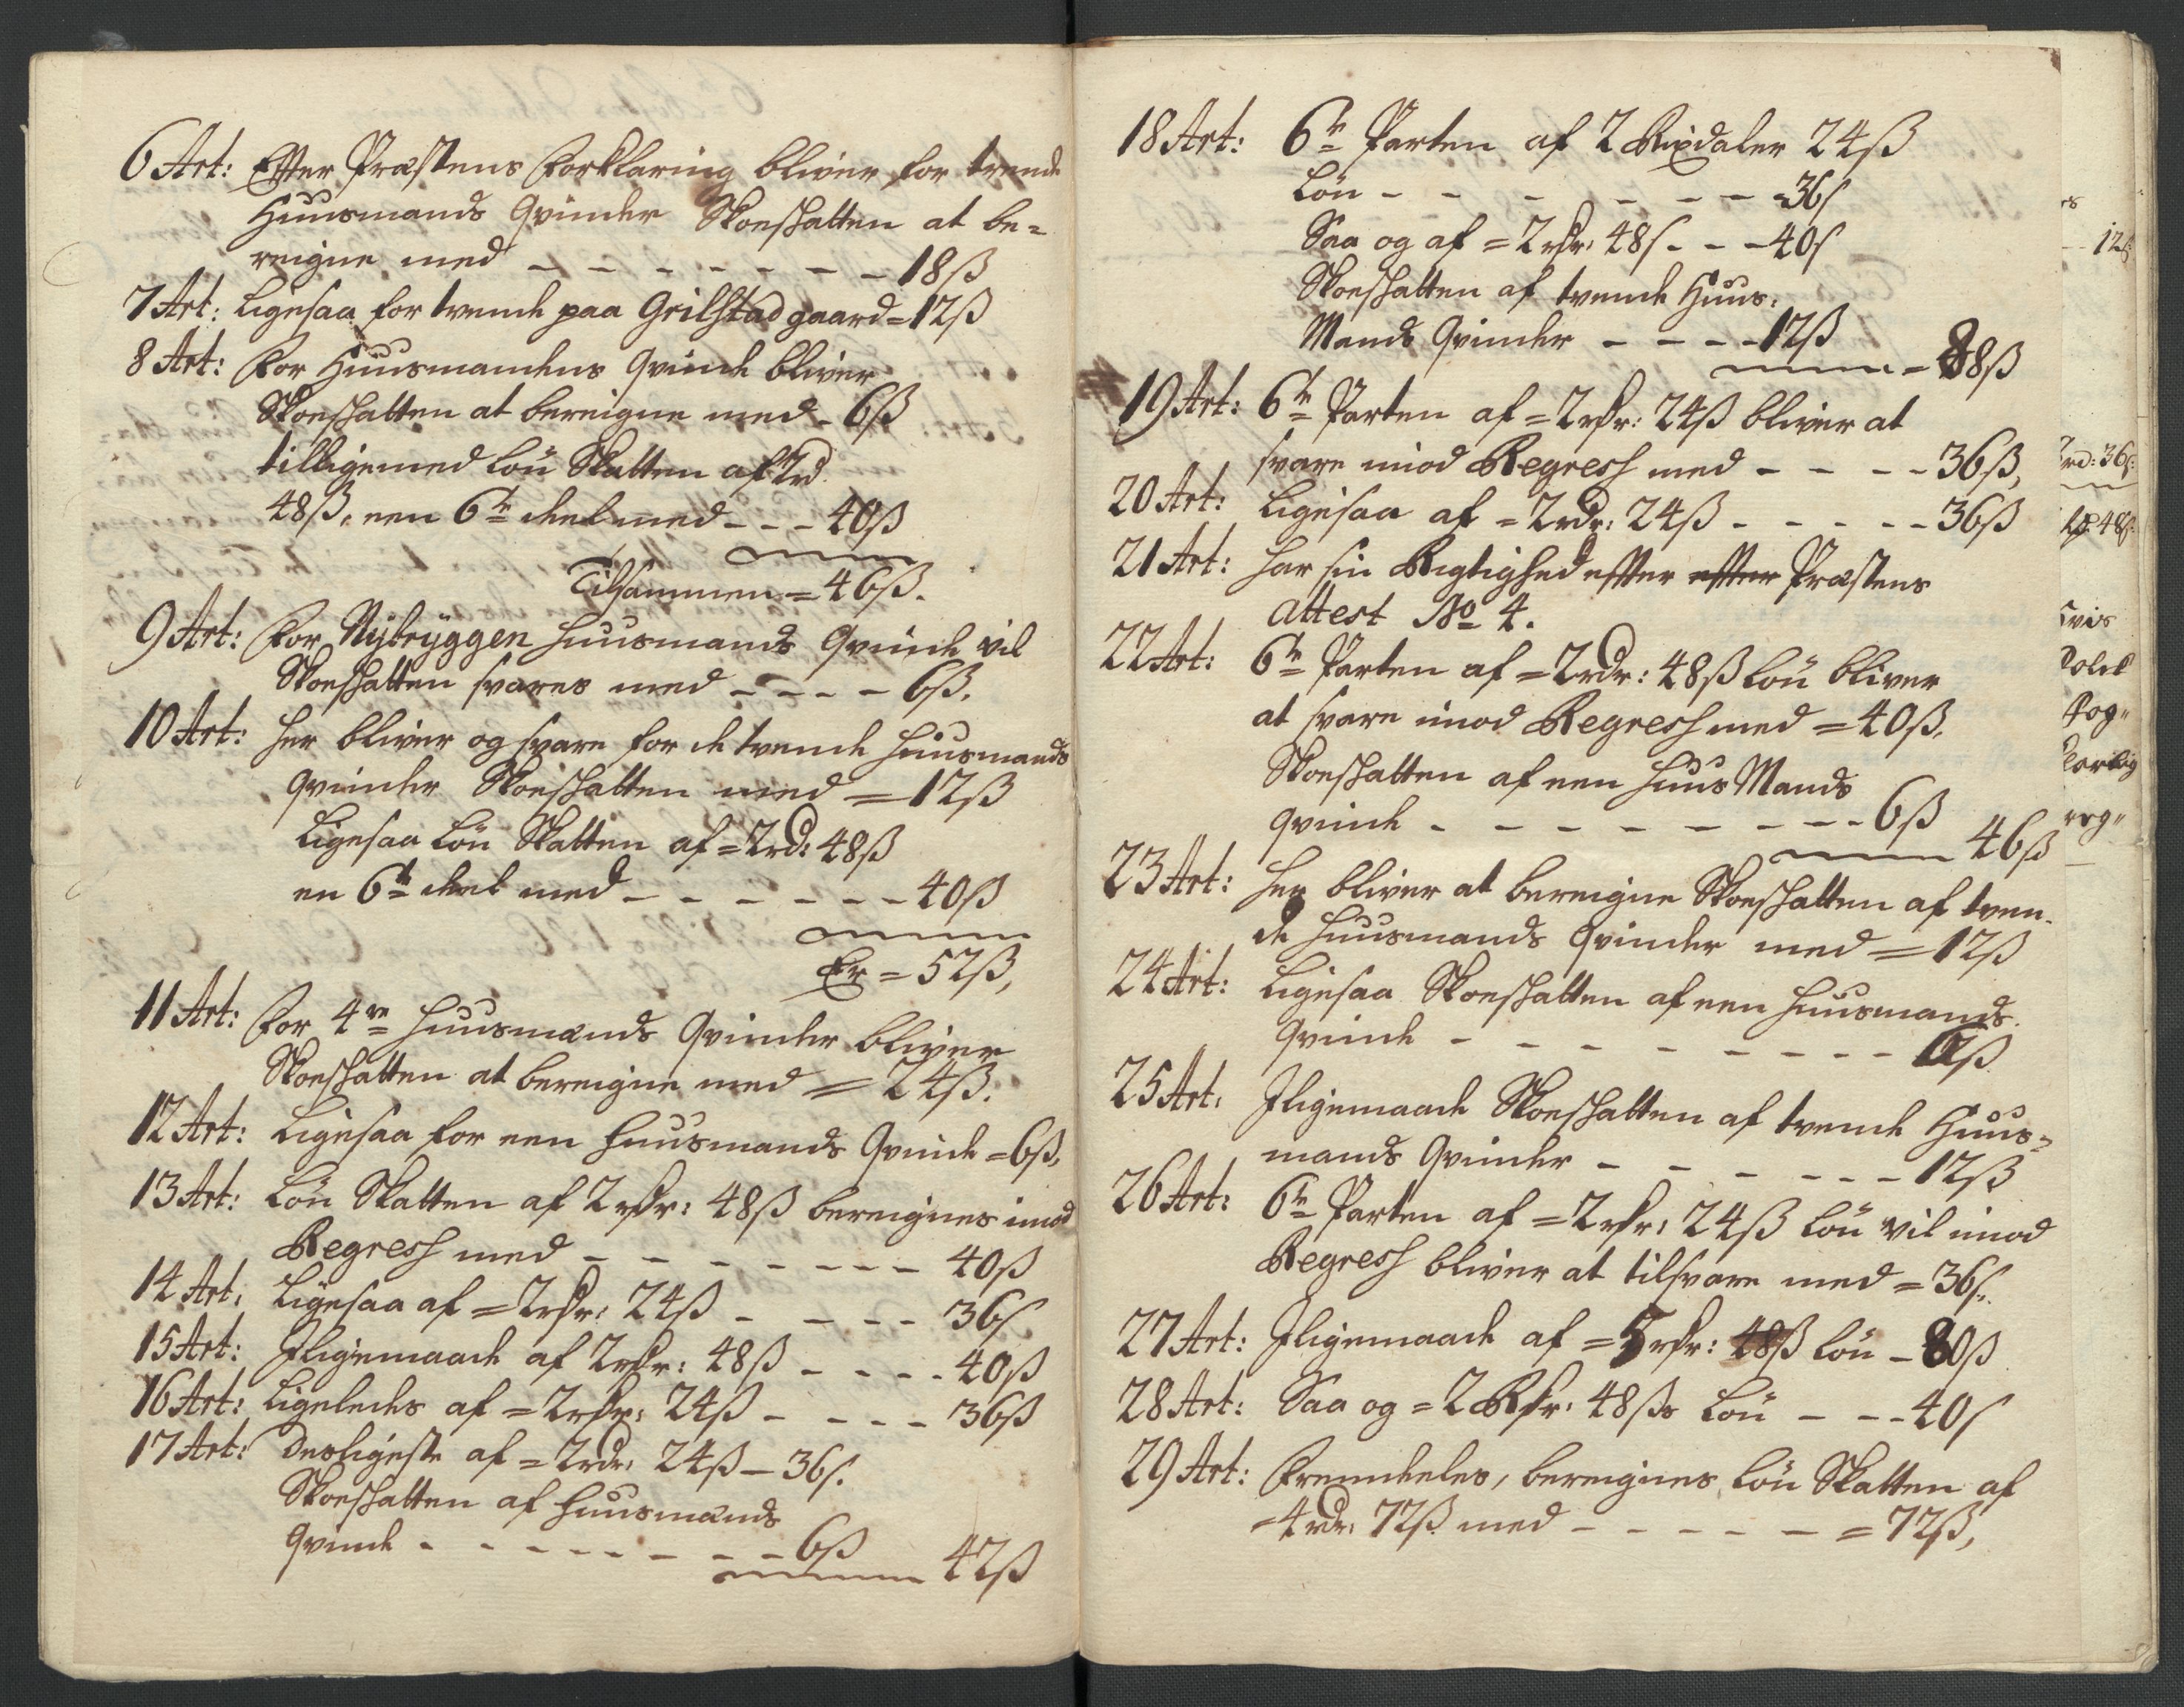 6 Art: Efter Præstens Forklaring bliver for trende
Huusmands Qvinder Skoeskatten at be=
reigne med - - - - - - - 18ß
7 Art: Ligesaa for tvende paa Grilstad gaard = 12ß
8 Art: For Huusmandens Qvinde bliver
Skoeskatten at bereigne med - 6ß
tilligemed Løn Skatten af 2rd
48ß, een 6te deel med - - - 40ß
Tilsammen = 46ß.
9 Art: For Nybryggen Huusmands Qvinde vil
Skoeskatten svares med - - - - 6ß.
10 Art: Her bliver og svare for de tvende Huusmands
Qvinder Skoeskatten med = 12ß
Ligesaa Løn Skatten af = 2rd: 48ß
en 6te deel med - - - - - - 40ß
Er = 52ß,
11 Art: For 4re Huusmands Qvinder bliver
Skoeskatten at bereigne med = 24ß.
12 Art: Ligesaa for een Huusmands Qvinde = 6ß,
13 Art: Løn Skatten af 2 rdr: 48ß bereignes imod
Regress med - - - - - - - 40ß
14 Art: Ligesaa af = 2rdr: 24ß - - - - 36ß
15 Art: Iligemaade af 2rdr: 48ß - - - - 40ß
16 Art: Ligeledes af = 2rdr: 24ß - - - - 36ß
17 Art: Desligeste af = 2rdr: 24ß - 36ß.
Skoeskatten af Huusmands
Qvinde - - - - - - - - - 6ß
42ß
18 Art: 6te Parten af 2 Rixdaler 24ß
Løn - - - - - - - 36ß
Saa og af = 2rdr: 48ß - - - 40ß
Skoeskatten af tvende Huus:
Mands Qvinder - - - - 12ß
= 88ß
19 Art: 6te Parten af = 2rdr: 24ß bliver at
svare imod Regress med - - - - 36ß,
20 Art: Ligesaa af = 2rdr: 24ß - - - - - 36ß
21 Art: Har sin Rigtighed efter efter Præstens
Attest No 4.
22 Art: 6te Parten af = 2rdr: 48ß Løn bliver
at svare imod Regress med = 40ß.
Skoeskatten af een Huus Mands
Qvinde - - - - - - - - - 6ß
46ß
23 Art: Her bliver at bereigne Skoeskatten af tven-
de Huusmands Qvinder med = 12ß
24 Art: Ligesaa Skoeskatten af een Huusmands
Qvinde - - - - - - - - 6ß
25 Art: Iligemaade Skoeskatten af tvende Huus=
mands Qvinder - - - - - - 12ß
26 Art: 6te Parten af = 2rdr: 24ß Løn vil imod
Regress bliver at tilsvare med = 36ß.
27 Art: Iligemaade af = 5 rdr: 48ß Løn - 80ß
28 Art: Saa og = 2 Rdr: 48ß Løn - - - 40ß
29 Art: Fremdeles, bereignes Løn Skatten af
= 4 rdr: 72ß med - - - - - = 72ß,